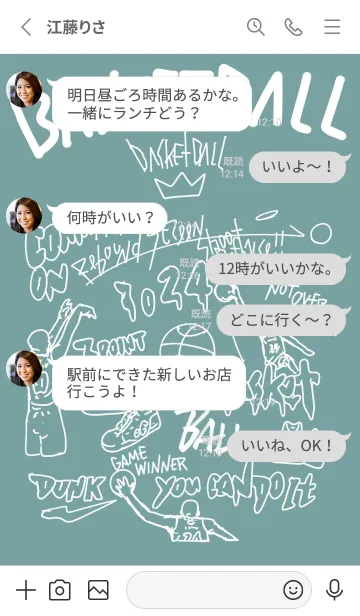 江藤りさ
BASKETBALL
明日昼ごろ時間あるかな。
一緒にランチどう？
12:10
BASKETBALL
既読
12:14
いいよ〜！
何時がいい？
COME
ON
Rebound
Screen
Shoot
既読
12時がいいかな。
NOT OVER
既読
どこに行く〜？
3 POINT
駅前にできた新しいお店
行こうよ！
Basket
BALL
いいね、OK！
GAME
WINNER
DUNK
YOU CAN DO It